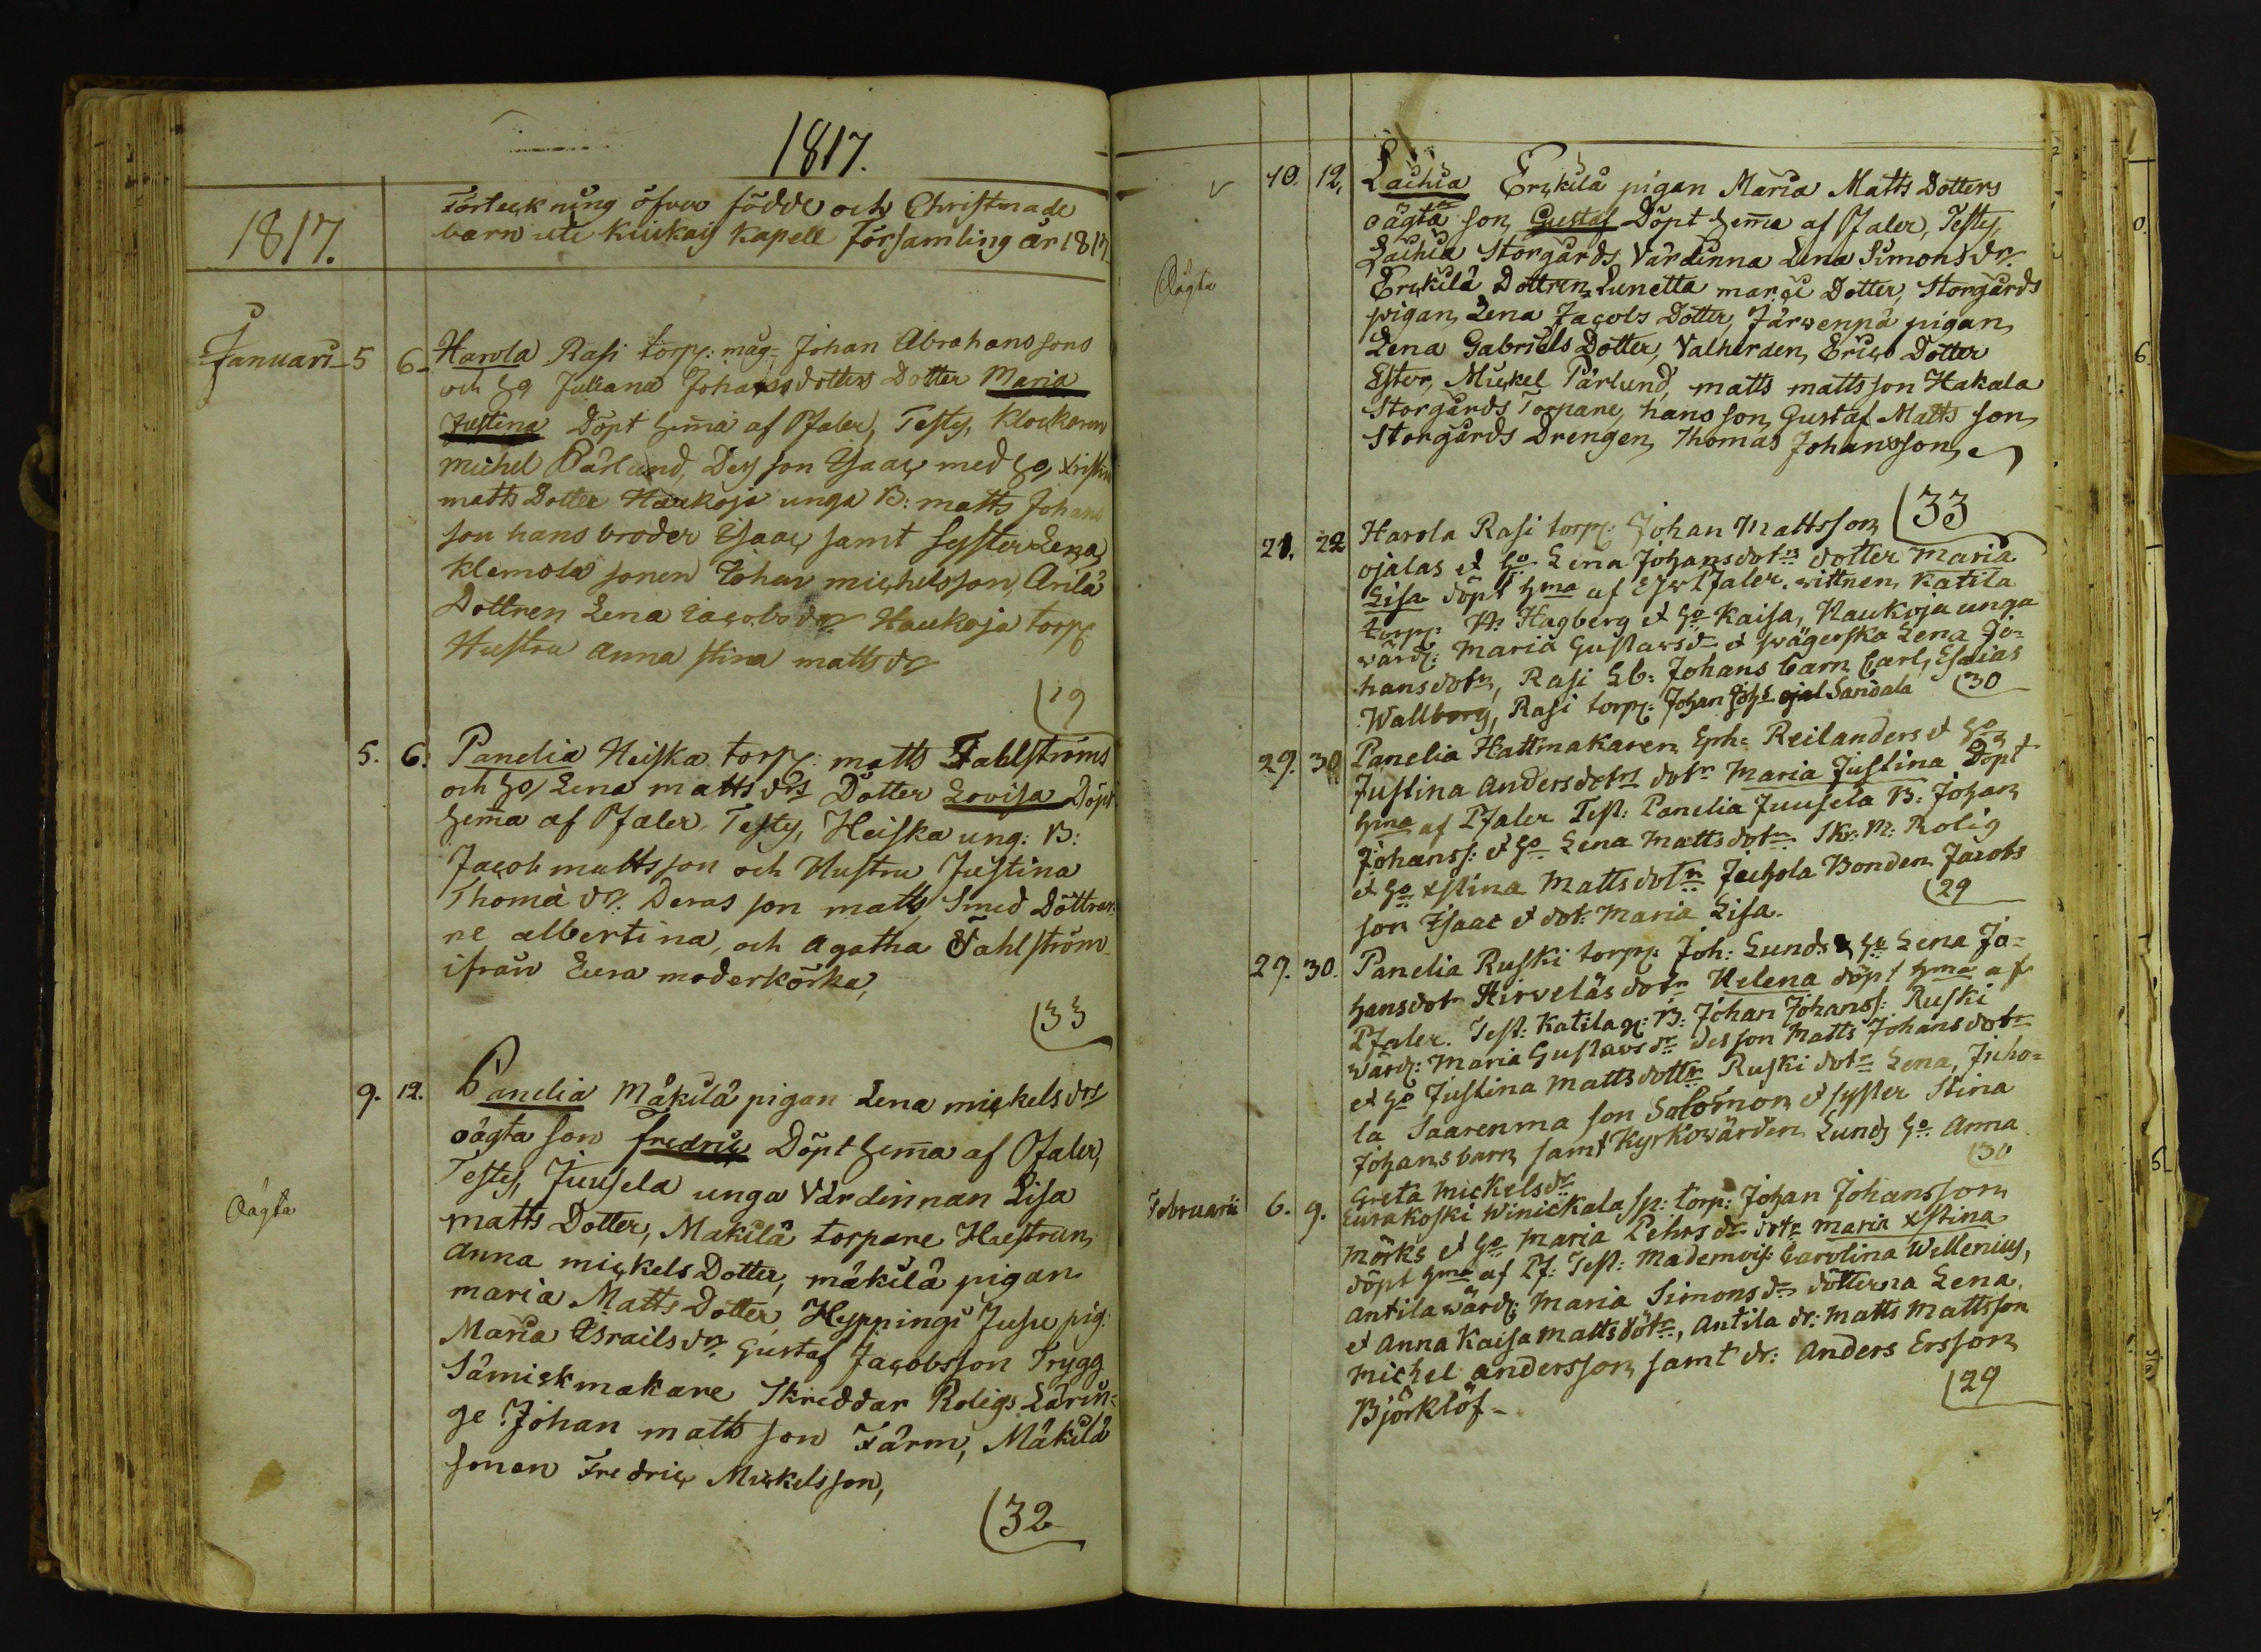 1817.
1817.
Förteckning öfver födde och Christnade
barn uti Kiukais Kapell församling år 1817
Januari 5 6 Harola Rasi torp: måg Johan Abrahanssons
och ho Juliana Johansdotters Dotter Maria
Justina Döpt hem̄a af Pfaler, Testes, Klockaren
Michel Pärlund, Des son Isaac med ho, Xristin
matts Dotter Haukoja unga B: matts Johans
son hans broder Isaac samt Syster Lena,
Klemola sonen Johan michelsson, Arila
Dottren Lena Jacobs dr Haukoja torp
Hustru Anna Stina matts dr
(29
5. 6. Panelia Heiska torp: matts Fahlströms
och ho Lena matts drs Dotter Lovisa Döpt
hem̄a af Pfaler. Testes, Heiska ung: B:
Jacob mattsson och Hustru Justina
Thoma dr. Deras son matts Smed Döttrar
ne albertina, och agatha Fahlström
ifrån Eura moderkörka,
(33
9. 12. Panelia Mäkilä pigan Lena mickels drs
oägta son Fredric Döpt hem̄a af Pfaler,
Oägta
Testes, Juusela unga Värdinnan Lisa
matts Dotter, Mäkilä torpare Hustrun
Anna mickels Dotter, mäkilä pigan
maria Matts Dotter, Hyppingi Jusu pig:
Maria Israils dr. Gustaf Jacobsson Trygg
Sämiskmakare Skreddar Roligs Lärin=
ge Johan matts son Färm, Mäkilä
sonen Fredric Mickelsson,
(32
10. 12. Laihia Erckilä pigan Maria Matts Dotters
oägta son, Gustaf Döpt hem̄a af Pfaler, Testes,
Oägta
Laihia Storgårds Värdinna Lena Simons dr.
Erckilä Dottren Lunetta Dotter, Storgårds
pigan, Lena Jacobs Dotter, Järvenpä pigan,
Lena Gabriels Dotter, Erics Dotter
Ester, Mickel Pärlund, matts mattsson Hakala
Storgårds Torpare, hans son, Gustaf Matts son
Storgårds Drengen, Thomas Johansson,
(33
21. 22 Harola Rasi torp: Johan Mattsson
ojalas et ho Lena Johansdotrs dotter Maria
Lisa döpt hma af Pfaler. wittnen Katila
torp: M: Hagberg et ho Kaisa, Haukoja unga
wärd: Maria Gustavsd et swägerska Lena Jo=
hansdotr, Rasi Lb: Johans barn Carl, Esaias
Wallborg, Rasi torp: Johan Johs ojal Sandala (30
29. 30. Panelia Hattmakaren Eph: Reilanders et ho
Justina Andersdotrs dotr Maria Justina Döpt
hma af Pfaler Test: Panelia Juusela B: Johan
Johanss: et ho Lena Mattsdotr Skr: M: Rolig
et ho Xstina Mattsdotr Jaehola Bonden Jacobs
son Isaac et dot: Maria Lisa.
(29
29. 30. Panelia Ruski torp: Joh: Lunds & ho Lena Jo=
hansdotr Hirveläs dotr Helena döpt hma af
Pfaler. Test: Katila g: B: Johan Johanss: Ruski
wärd: Maria Gustavs dr des son Matts Johansdotr
et ho Justina Mattsdottr Ruski dotr Lena, Juho=
la Saarenma son Salomon et syster Stina
Johans barn samt Kyrkowärden Lunds ho Anna
Greta Mickelsdr
(30
Februarii 6. 9. Eurakoski Winickala sp: torp: Johan Johansson
Mörks et ho Maria Pehrs dr dotr Maria Xstina
döpt hma af Pf: Test: Mademois: Carolina Wellenius,
Antila wärd: Maria Simons dr dötterna Lena
et Anna Kaisa Matts dötr, Antila dr: Matts Mattsson
Michel andersson samt dr: Anders Ersson
Björklöf
(29